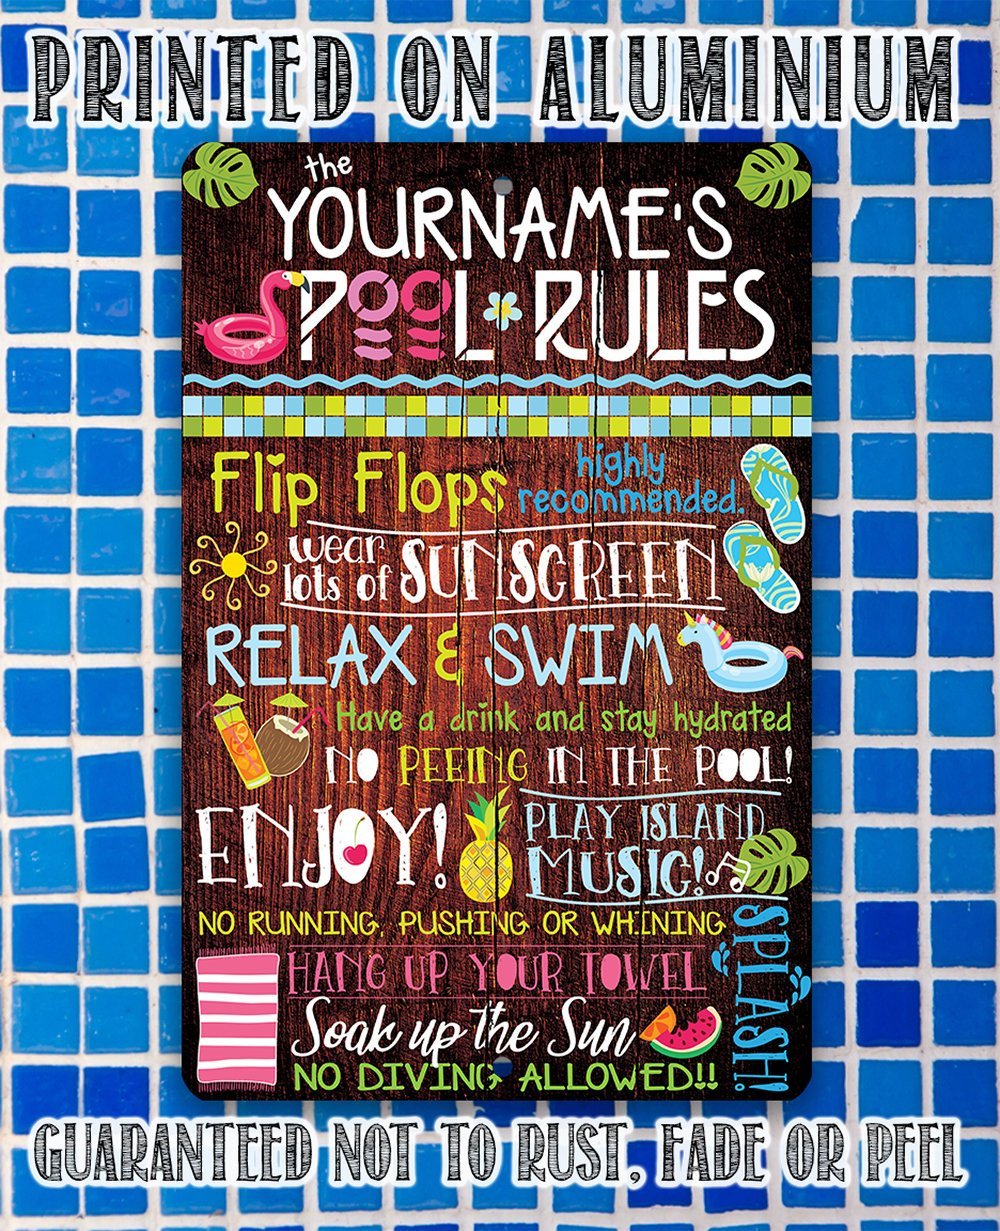 PRINTED ON ALUMINIUM
the
YOURNAME'S
POOL RULES
Flip Flops highly
recommended.
wear
lots of SUNSCREEN
RELAX & SWIM
Have a drink and stay hydrated
NO PEEING IN THE POOL!
ENJOY!
PLAY ISLAND
MUSIC!
NO RUNNING, PUSHING OR WHINING
SPLASH!
HANG UP YOUR TOWEL
Soak up the Sun
NO DIVING ALLOWED!!
GUARANTEED NOT TO RUST, FADE OR PEEL